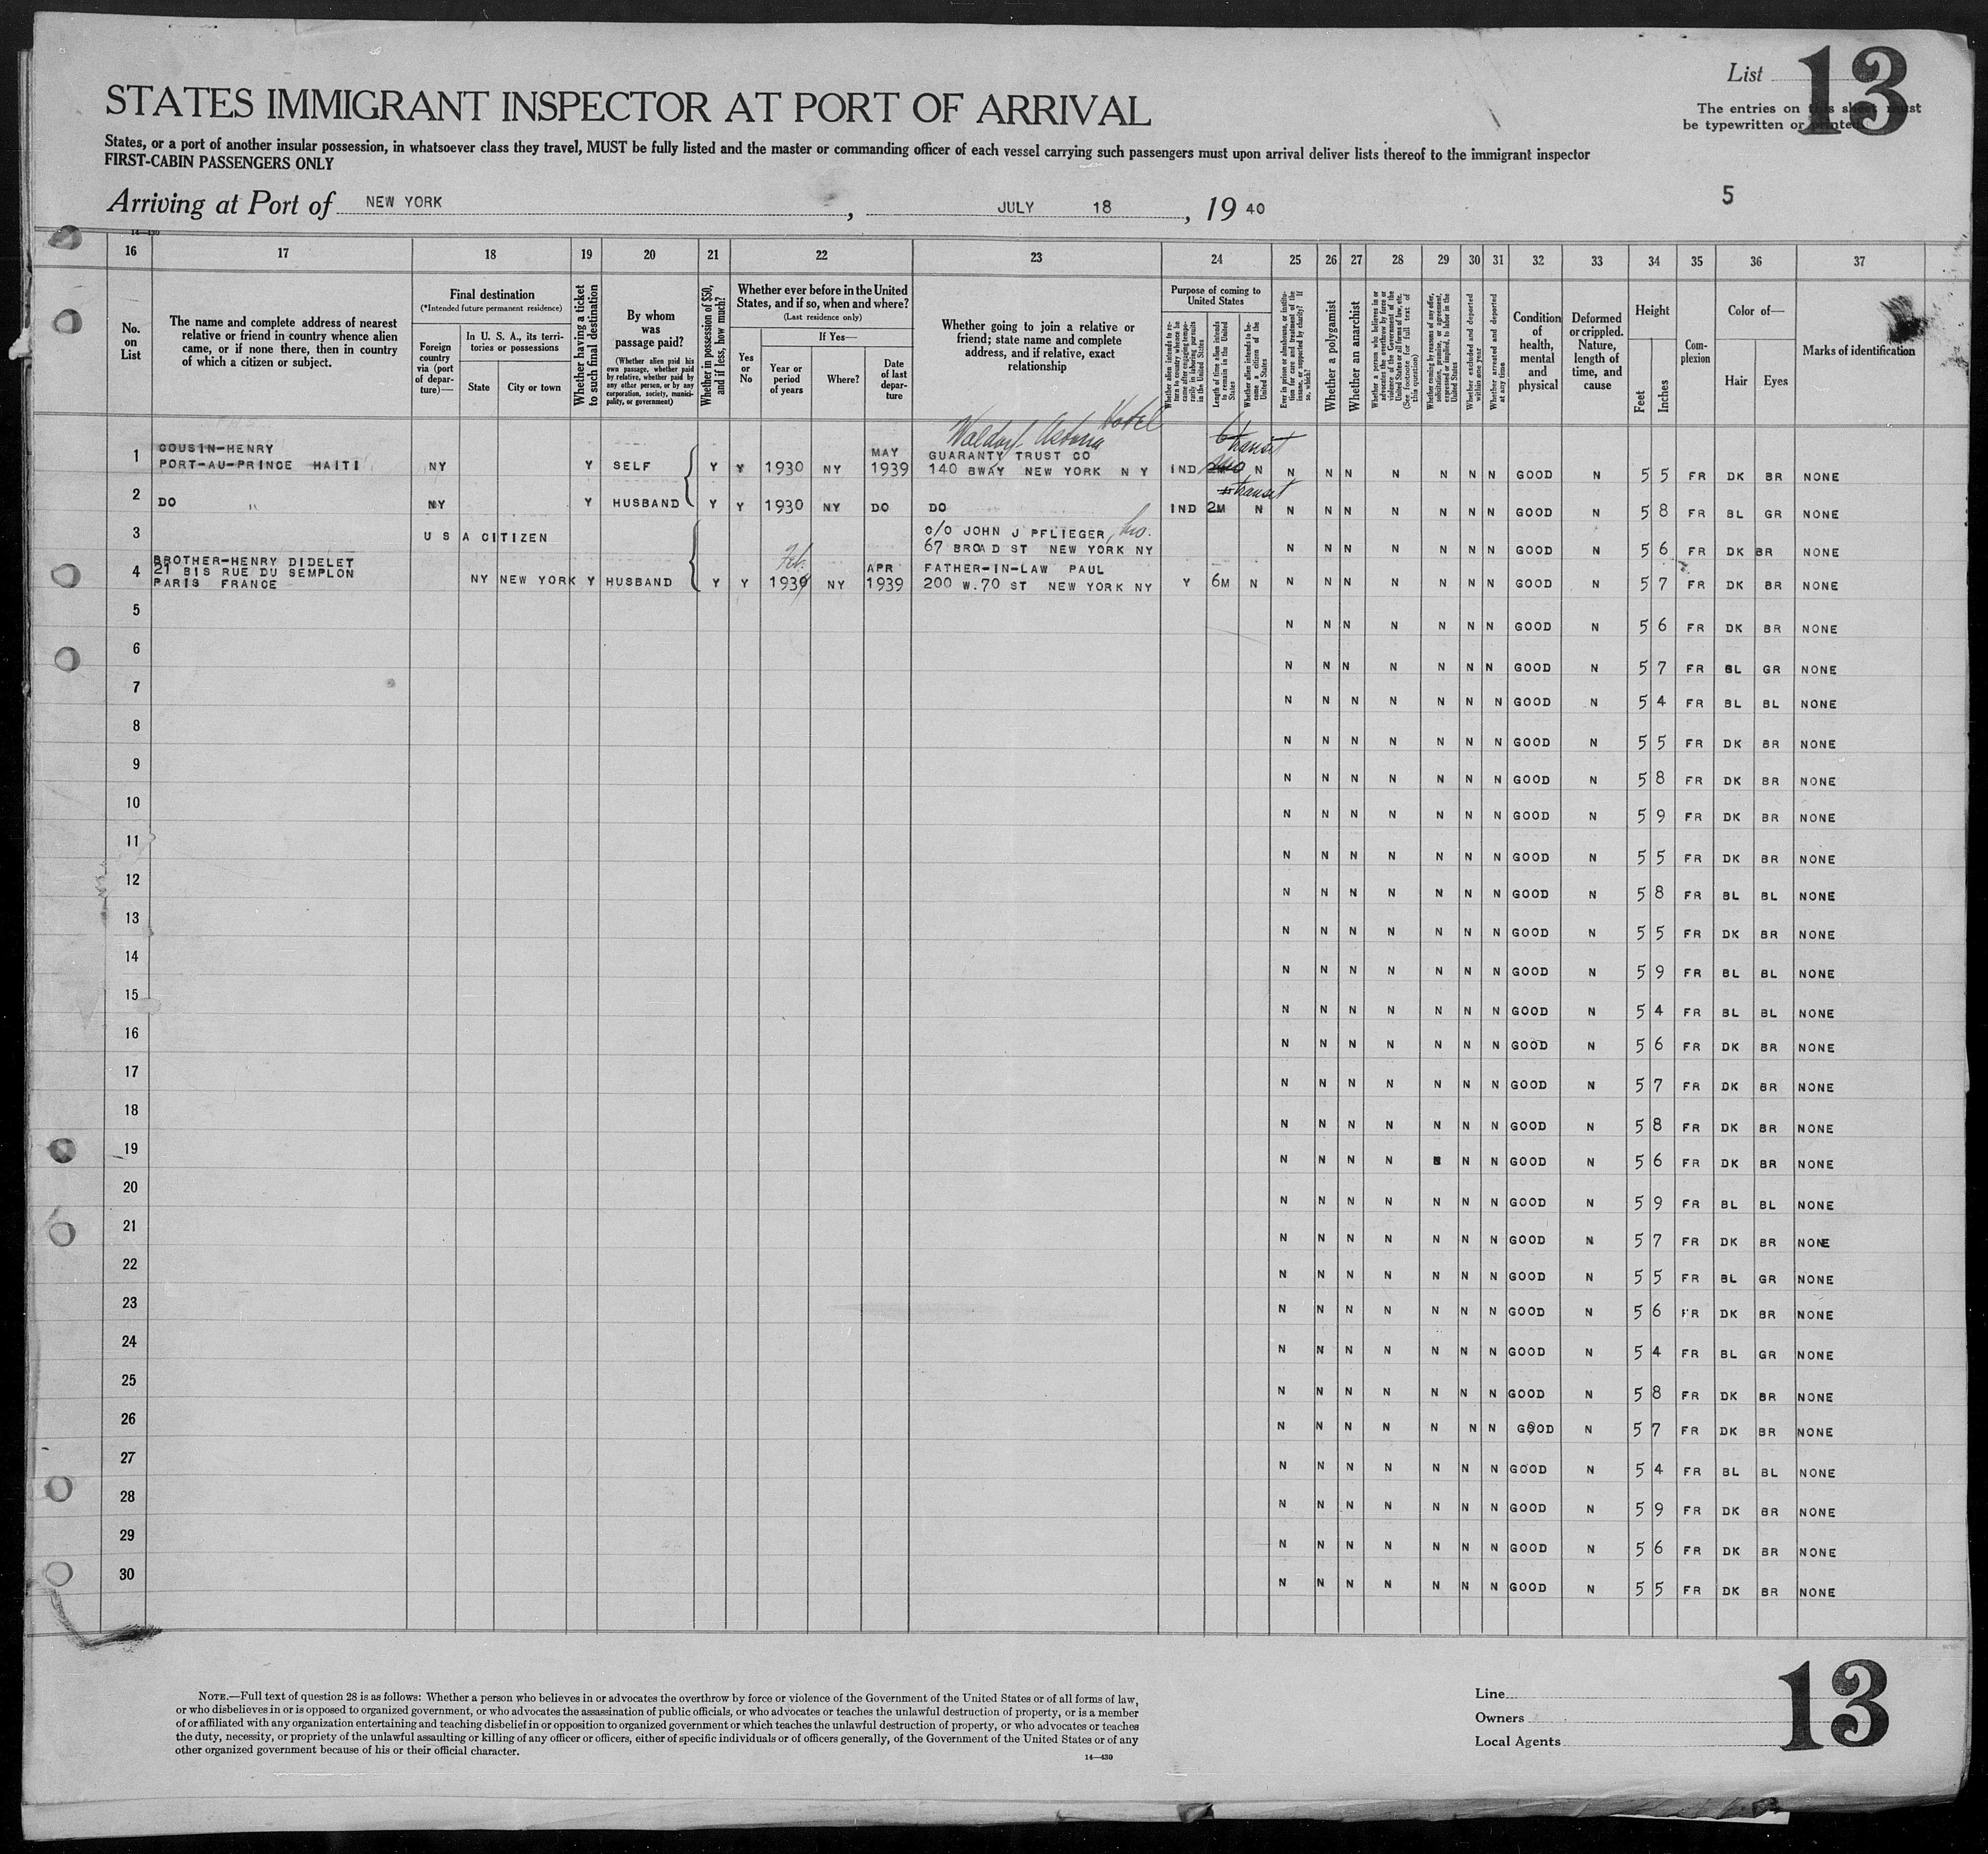 List 13
STATES IMMIGRANT INSPECTOR AT PORT OF ARRIVAL
The entries on this sheet must
be typewritten or printed
States, or a port of another insular possession, in whatsoever class they travel, MUST be fully listed and the master or commanding officer of each vessel carrying such passengers must upon arrival deliver lists thereof to the immigrant inspector
FIRST-CABIN PASSENGERS ONLY
5
Arriving at Port of NEW YORK, JULY 18, 19 40
14—430
16 17 18 19 20 21 22 23 24 25 26 27 28 29 30 31 32 33 34 35 36 37
No. on List
The name and complete address of nearest relative or friend in country whence alien came, or if none there, then in country of which a citizen or subject.
Final destination
(*Intended future permanent residence)
Foreign country via (port of departure)—
In U. S. A., its territories or possessions
State City or town
Whether having a ticket to such final destination
By whom was passage paid?
(Whether alien paid his own passage, whether paid by relative, whether paid by any other person, or by any corporation, society, municipality, or government)
Whether in possession of $50, and if less, how much?
Whether ever before in the United States, and if so, when and where?
(Last residence only)
Yes or No
If Yes—
Year or period of years
Where?
Date of last departure
Whether going to join a relative or friend; state name and complete address, and if relative, exact relationship
Purpose of coming to United States
Whether alien intends to return to country whence he came after engaging temporarily in laboring pursuits in the United States
Length of time alien intends to remain in the United States
Whether alien intends to become a citizen of the United States
Ever in prison or almshouse, or institution for care and treatment of the insane, or supported by charity? If so, which?
Whether a polygamist
Whether an anarchist
Whether a person who believes in or advocates the overthrow by force or violence of the Government of the United States or all forms of law, etc. (See footnote for full text of this question)
Whether coming by reasons of any offer, solicitation, promise, or agreement, expressed or implied, to labor in the United States
Whether excluded and deported within one year
Whether arrested and deported at any time
Condition of health, mental and physical
Deformed or crippled. Nature, length of time, and cause
Height
Feet Inches
Complexion
Color of—
Hair Eyes
Marks of identification
Waldorf-Astoria Hotel
transit
1 COUSIN-HENRY
PORT-AU-PRINCE HAITI NY Y SELF Y Y 1930 NY MAY 1939 GUARANTY TRUST CO
140 BWAY NEW YORK N Y IND N N N N N N N N GOOD N 5 5 FR DK BR NONE
transit
2 DO " NY Y HUSBAND Y Y 1930 NY DO DO IND 2M N N N N N N N N GOOD N 5 8 FR BL GR NONE
3 U S A CITIZEN C/O JOHN J PFLIEGER
67 BROAD ST NEW YORK NY N N N N N N N GOOD N 5 6 FR DK BR NONE
4 BROTHER-HENRY DIDELET
21 BIS RUE DU SEMPLON
PARIS FRANCE NY NEW YORK Y HUSBAND Y Y Feb. 1939 NY APR 1939 FATHER-IN-LAW PAUL
200 W.70 ST NEW YORK NY Y 6M N N N N N N N N GOOD N 5 7 FR DK BR NONE
5 N N N N N N N GOOD N 5 6 FR DK BR NONE
6 N N N N N N N GOOD N 5 7 FR BL GR NONE
7 N N N N N N N GOOD N 5 4 FR BL BL NONE
8 N N N N N N N GOOD N 5 5 FR DK BR NONE
9 N N N N N N N GOOD N 5 8 FR DK BR NONE
10 N N N N N N N GOOD N 5 9 FR DK BR NONE
11 N N N N N N N GOOD N 5 5 FR DK BR NONE
12 N N N N N N N GOOD N 5 8 FR BL BL NONE
13 N N N N N N N GOOD N 5 5 FR DK BR NONE
14 N N N N N N N GOOD N 5 9 FR BL BL NONE
15 N N N N N N N GOOD N 5 4 FR BL BL NONE
16 N N N N N N N GOOD N 5 6 FR DK BR NONE
17 N N N N N N N GOOD N 5 7 FR DK BR NONE
18 N N N N N N N GOOD N 5 8 FR DK BR NONE
19 N N N N N N N GOOD N 5 6 FR DK BR NONE
20 N N N N N N N GOOD N 5 9 FR BL BL NONE
21 N N N N N N N GOOD N 5 7 FR DK BR NONE
22 N N N N N N N GOOD N 5 5 FR BL GR NONE
23 N N N N N N N GOOD N 5 6 FR DK BR NONE
24 N N N N N N N GOOD N 5 4 FR BL GR NONE
25 N N N N N N N GOOD N 5 8 FR DK BR NONE
26 N N N N N N N GOOD N 5 7 FR DK BR NONE
27 N N N N N N N GOOD N 5 4 FR BL BL NONE
28 N N N N N N N GOOD N 5 9 FR DK BR NONE
29 N N N N N N N GOOD N 5 6 FR DK BR NONE
30 N N N N N N N GOOD N 5 5 FR DK BR NONE
NOTE.—Full text of question 28 is as follows: Whether a person who believes in or advocates the overthrow by force or violence of the Government of the United States or of all forms of law,
or who disbelieves in or is opposed to organized government, or who advocates the assassination of public officials, or who advocates or teaches the unlawful destruction of property, or is a member
of or affiliated with any organization entertaining and teaching disbelief in or opposition to organized government or which teaches the unlawful destruction of property, or who advocates or teaches
the duty, necessity, or propriety of the unlawful assaulting or killing of any officer or officers, either of specific individuals or of officers generally, of the Government of the United States or of any
other organized government because of his or their official character.
14—430
Line
Owners
Local Agents
13